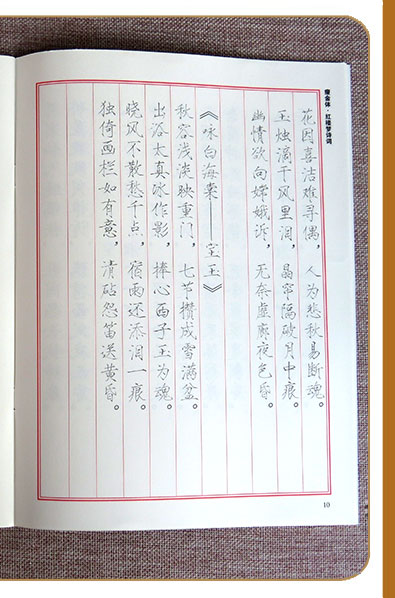 瘦金体·红楼梦诗词
花因喜洁难寻偶，人为悲秋易断魂。
玉烛滴干风里泪，晶帘隔破月中痕。
幽情欲向嫦娥诉，无奈虚廊夜色昏。
《咏白海棠——宝玉》
秋容浅淡映重门，七节攒成雪满盆。
出浴太真冰作影，捧心西子玉为魂。
晓风不散愁千点，宿雨还添泪一痕。
独倚画栏如有意，清砧怨笛送黄昏。
10